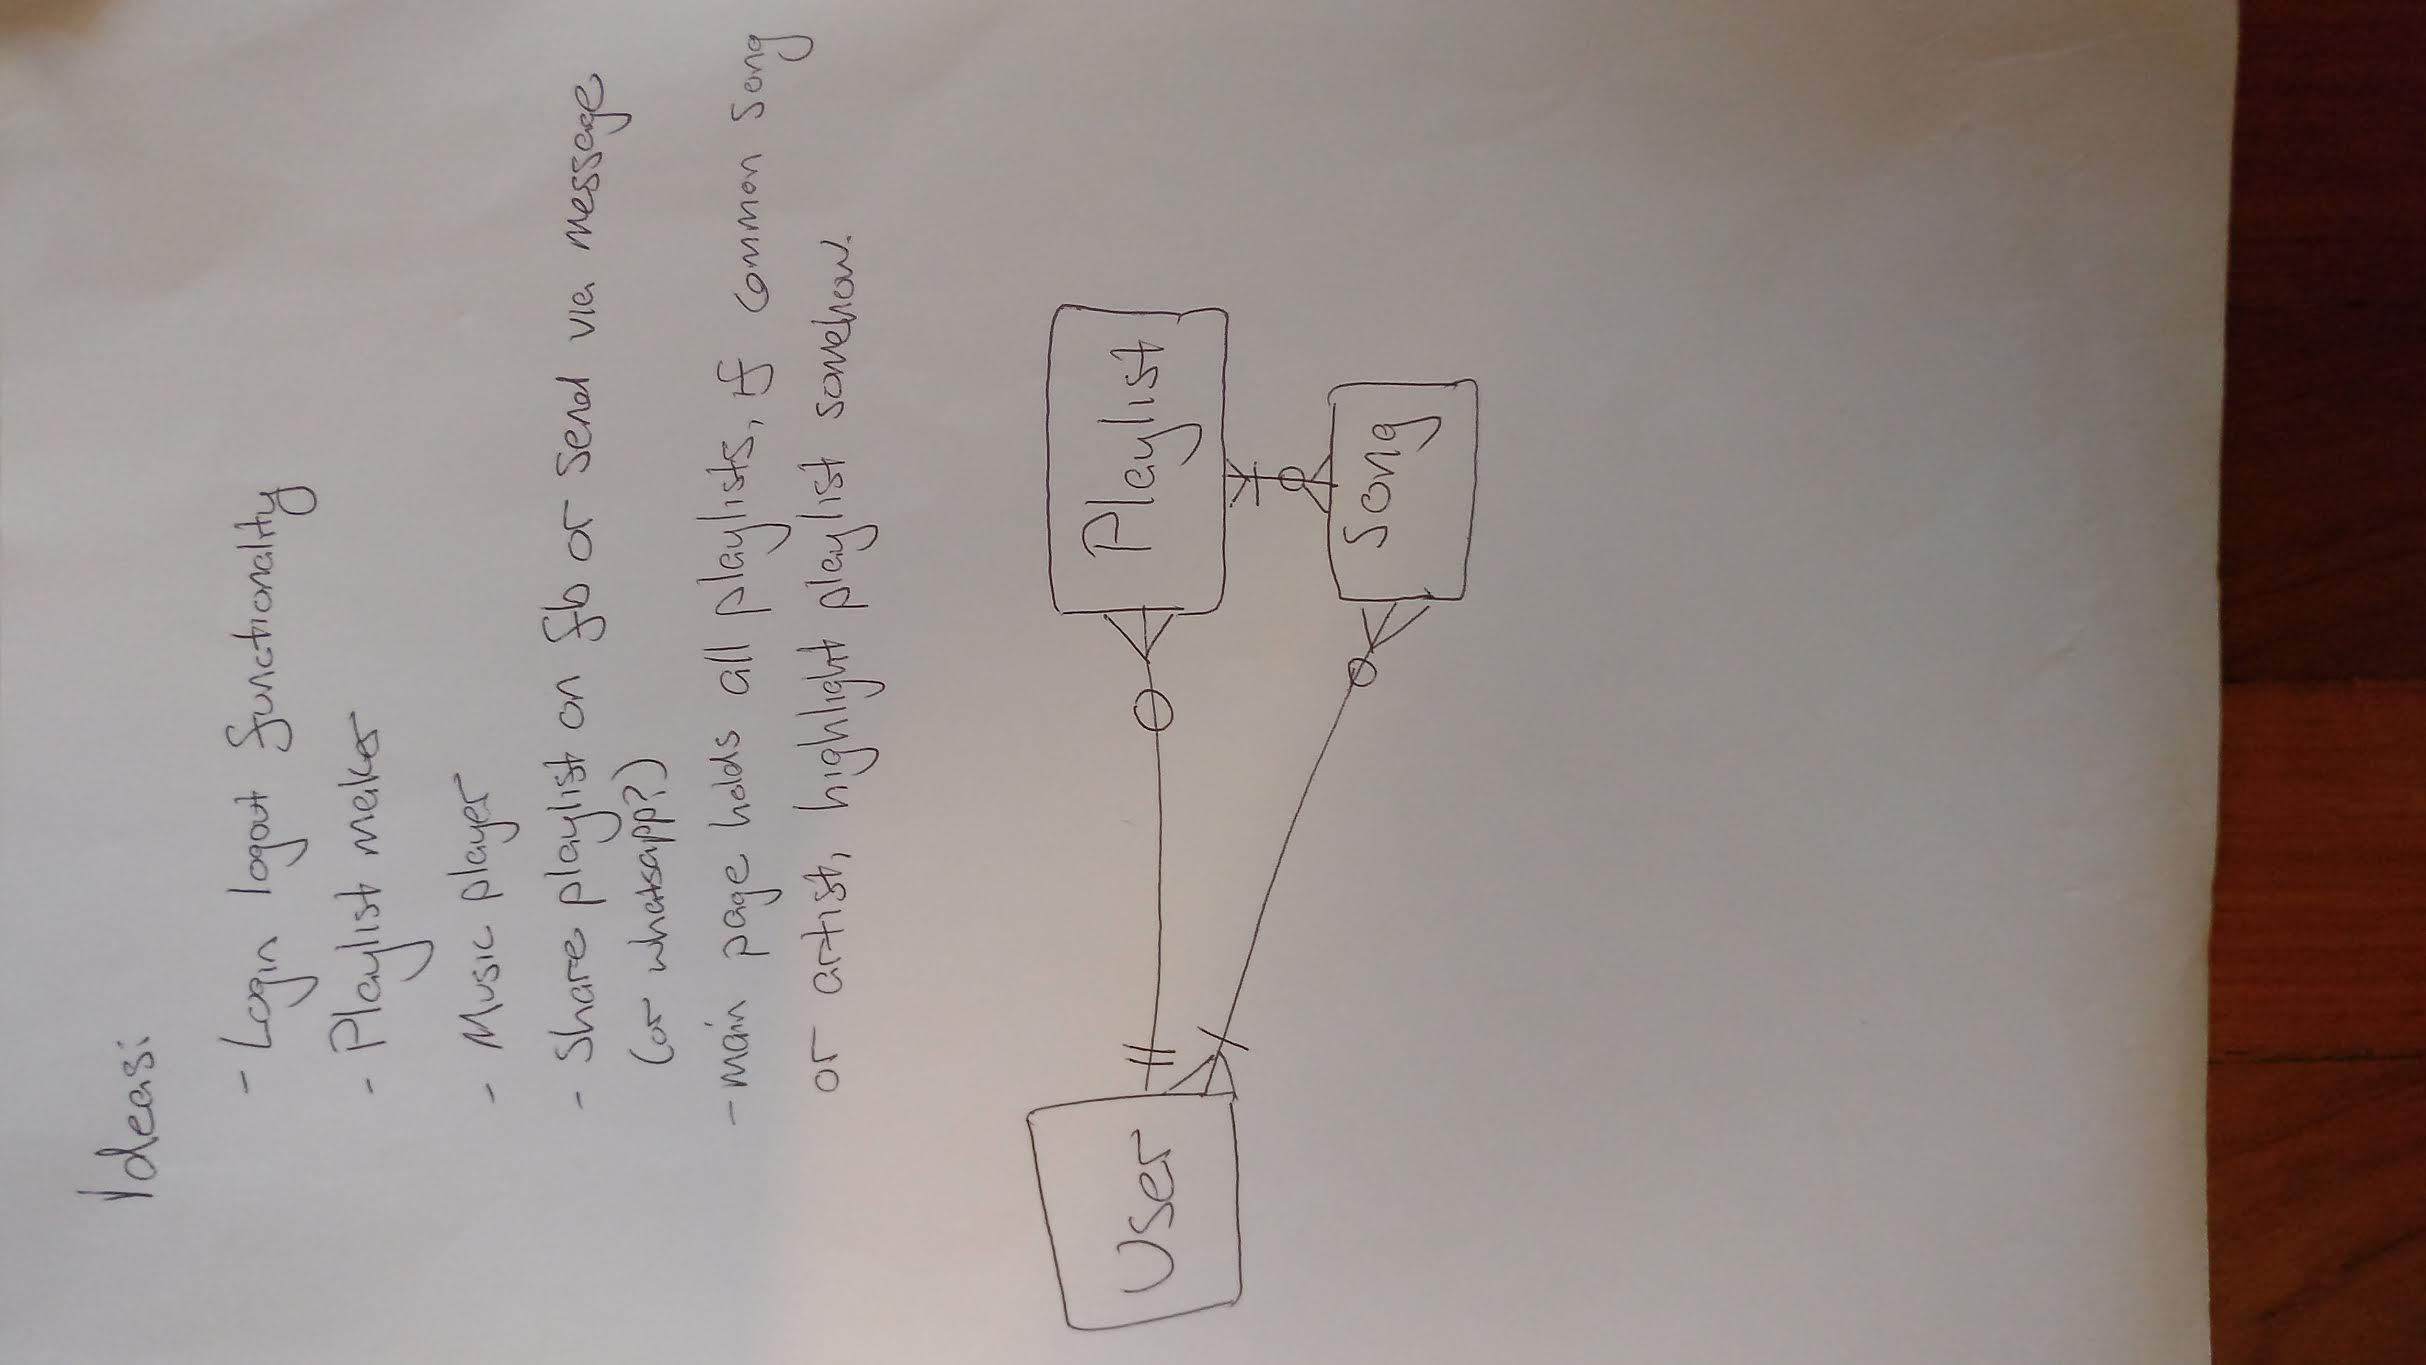 Ideas:
- Login logout functionality
- Playlist maker
- Music player
- Share playlist on fb or send via message
(or whatsapp?)
- main page holds all playlists, if common song
or artist, highlight playlist somehow.
User
Playlist
Song